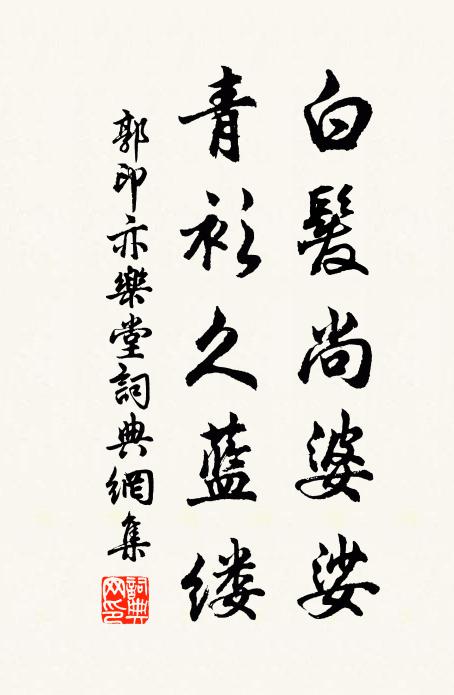 白髮尚婆娑
青衫久藍缕
郭印亦樂堂詞典網集
詞典
网印